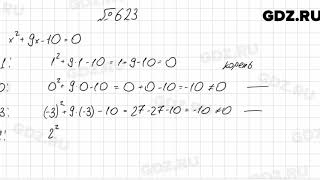 GDZ.RU
№623
x² + 9x - 10 = 0
1: 1² + 9·1 - 10 = 1 + 9 - 10 = 0 корень
0: 0² + 9·0 - 10 = 0 + 0 - 10 = -10 ≠ 0 —
(-3)² + 9·(-3) - 10 = 27 - 27 - 10 = -10 ≠ 0 —
2²